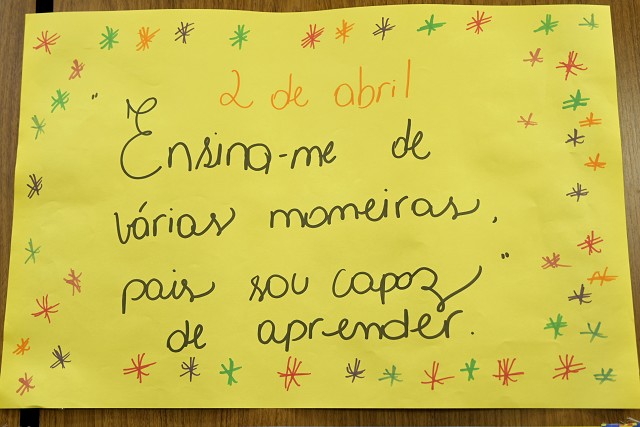 2 de abril
"Ensina-me de
várias maneiras,
pois sou capaz"
de aprender.